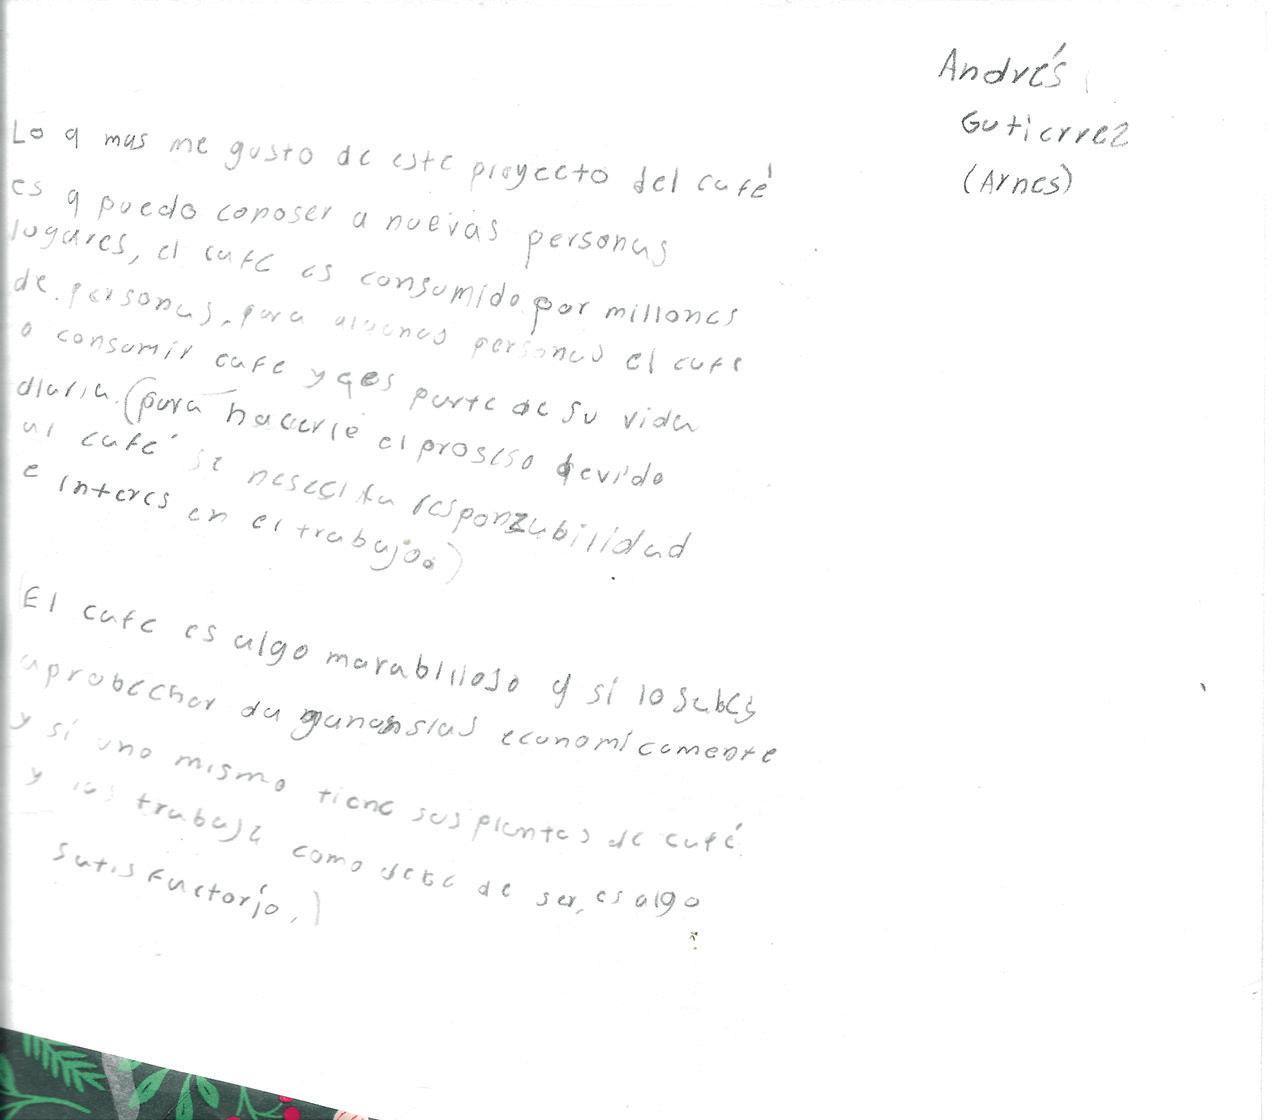 Andrés
Gutierrez
(Arnes)
Lo q mas me gusto de este proyecto del café
es q puedo conoser a nuevas personas
lugares, el cafe es consumido por millones
de personas, para algunas personas el cafe
o consumir cafe y qes parte de su vida
diaria. (para hacerle el proseso devido
al café se nesesita responzabilidad
e interes en el trabajo.)
El cafe es algo marabilloso y si lo sabes
aprobechar da ganansias economicamente
y si uno mismo tiene sus plantas de café
y las trabaja como debe de ser, es algo
satisfactorio.)